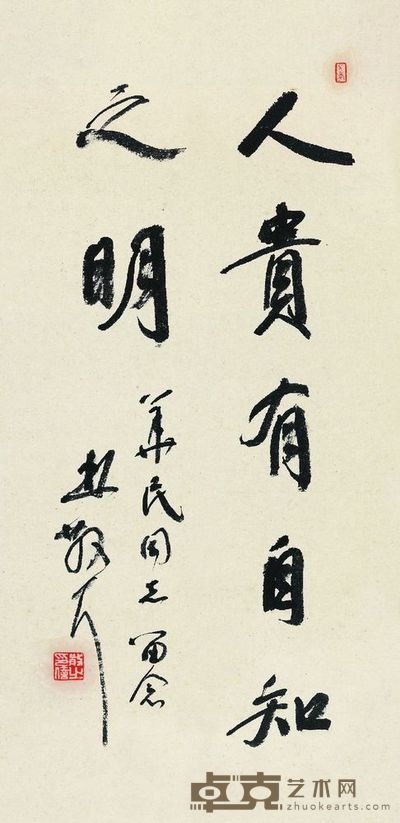 人貴有自知
之明
華民同志留念
林散耳
卓克艺术网
zhuokearts.com